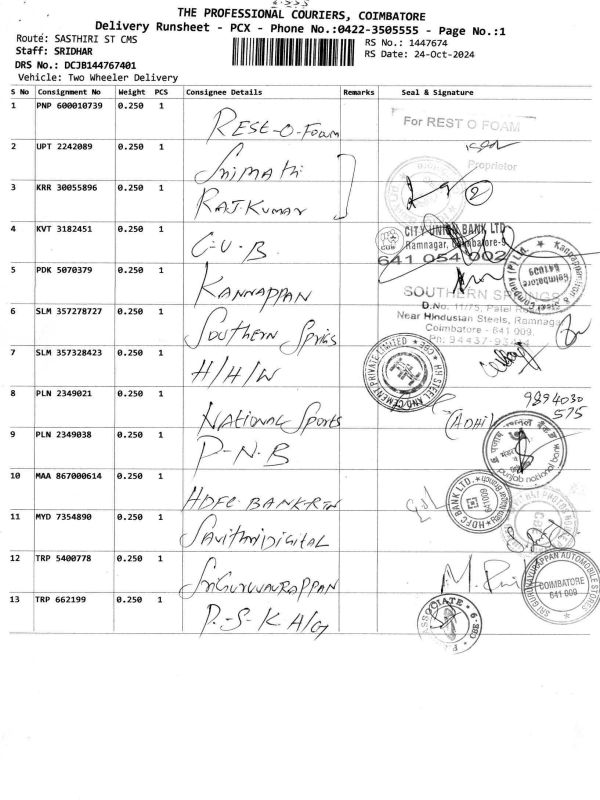 THE PROFESSIONAL COURIERS, COIMBATORE
Delivery Runsheet - PCX - Phone No.:0422-3505555 - Page No.:1
Route: SASTHIRI ST CMS
RS No.: 1447674
Staff: SRIDHAR
RS Date: 24-Oct-2024
DRS No.: DCJB144767401
Vehicle: Two Wheeler Delivery
S No Consignment No Weight PCS Consignee Details Remarks Seal & Signature
1 PNP 600010739 0.250 1 REST-O-Foam
For REST O FOAM
2 UPT 2242089 0.250 1 Srimathi
Proprietor
3 KRR 30055896 0.250 1 RAJKUMAR
2
4 KVT 3182451 0.250 1 C-U-B
CITY UNION BANK LTD
Ramnagar, Coimbatore-9
641 054 002
5 PDK 5070379 0.250 1 KANNAPPAN
Coimbatore
641009
SOUTHERN SPRINGS
D.No. 11/75, Patel Road
Near Hindustan Steels, Ramnagar
Coimbatore - 641 009.
6 SLM 357278727 0.250 1 Southern Sprigs
Ph: 94437-934
7 SLM 357328423 0.250 1 H/H/W
HH STEEL AND CEMENT PRIVATE LIMITED * CBE *
8 PLN 2349021 0.250 1 NATIONAL Sports
(ADHI)
9894030
575
9 PLN 2349038 0.250 1 P-N-B
punjab national bank
10 MAA 867000614 0.250 1 HDFC BANK-RN
HDFC BANK LTD.
641009
11 MYD 7354890 0.250 1 SAVITHRI DIGITAL
12 TRP 5400778 0.250 1 SRIGURUVAURAPPAN
SRI GURUVAYURAPPAN AUTOMOBILE STORES
COIMBATORE
641 009
13 TRP 662199 0.250 1 P.-S-K A/G
ASSOCIATE * CBE-9